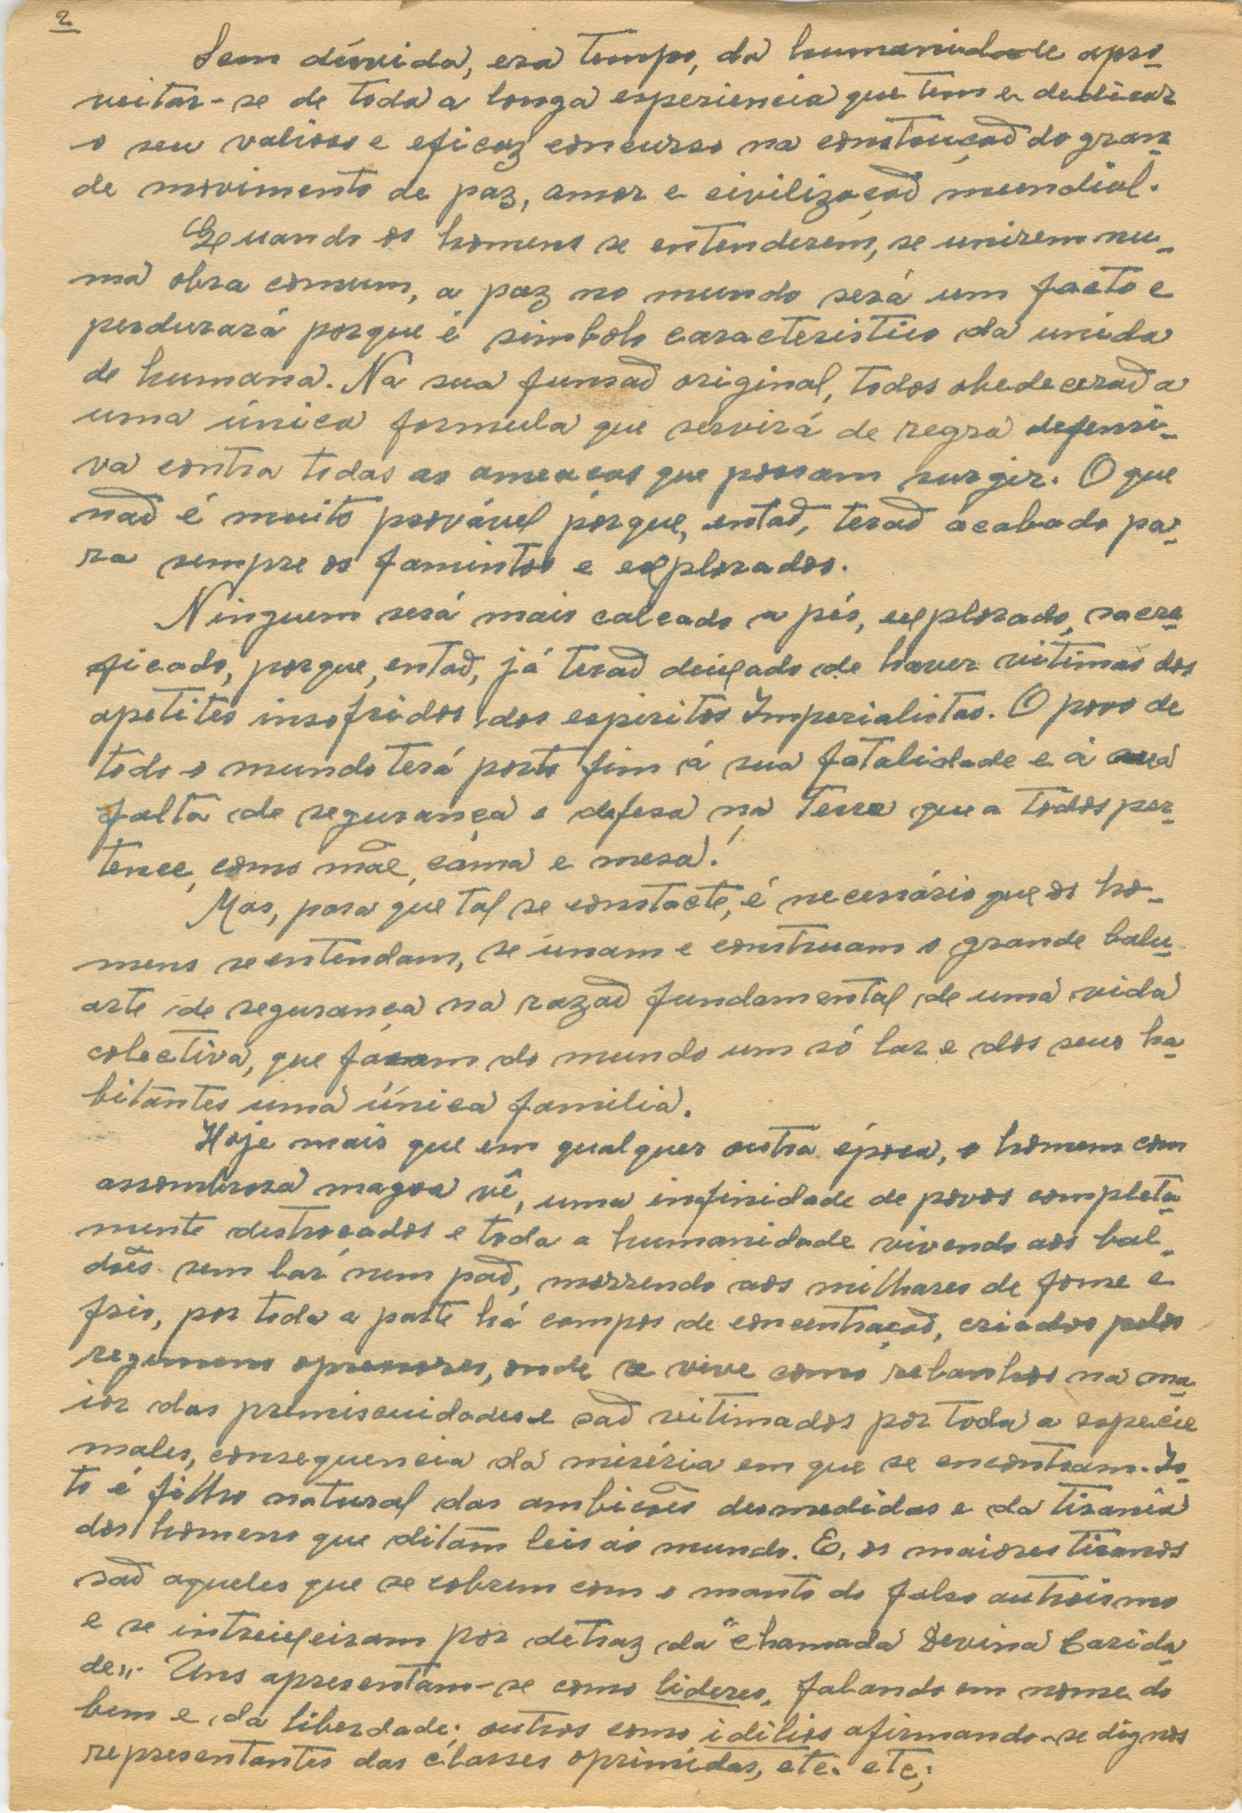 2
Sem dúvida, era tempo, da humanidade apro-
veitar-se de toda a longa experiencia que tem e dedicar
o seu valioso e eficaz concurso na construçaõ do gran-
de movimento de paz, amor e civilizaçaõ mundial.
Quando os homens se entenderem, se unirem nu-
ma obra comum, a paz no mundo será um facto e
perdurará porque é simbolo caracteristico da unida
de humana. Na sua funsaõ original, todos obedeceraõ a
uma única formula que servirá de regra defensi-
va contra todas as ameaças que possam surgir. O que
naõ é muito provável porque, entaõ, teraõ acabado pa-
ra sempre os famintos e explorados.
Ninguem será mais calcado a pés, explorado, sacre-
ficado, porque, entaõ, já teraõ deixado de haver vitimas dos
apetites insofridos, dos espiritos Imperialistas. O povo de
todo o mundo terá posto fim á sua fatalidade e á sua
falta de segurança e defesa na Terra que a todos per-
tence, como mãe, cama e mesa!
Mas, para que tal se constacte, é necessário que os ho-
mens se entendam, se unam e construam o grande balu-
arte de segurança na razaõ fundamental de uma vida
colectiva, que façam do mundo um só lar e dos seus ha-
bitantes uma única familia.
Hoje mais que em qualquer outra época, o homem com
assombrosa magoa vê, uma infinidade de povos completa-
mente destroçados e toda a humanidade vivendo aos bal-
dões sem lar nem paõ, morrendo aos milhares de fome e
frio, por toda a parte há campos de concentraçaõ, criados pelos
regimens opressores, onde se vive como rebanhos na ma-
ior das premiscuidades e saõ vitimados por toda a especie
males, consequencia da miséria em que se encontram. Is-
to é filho natural das ambicões desmedidas e da tirania
dos homens que ditam leis ao mundo. E, os maiores tiranos
saõ aqueles que se cobrem com o manto do falso autroismo
e se intreixeiram por detraz da "chamada Devina Carida-
de". Uns apresentam-se como lideres, falando em nome do
bem e da liberdade; outros como idilios afirmando-se dignos
representantes das classes oprimidas, etc. etc;